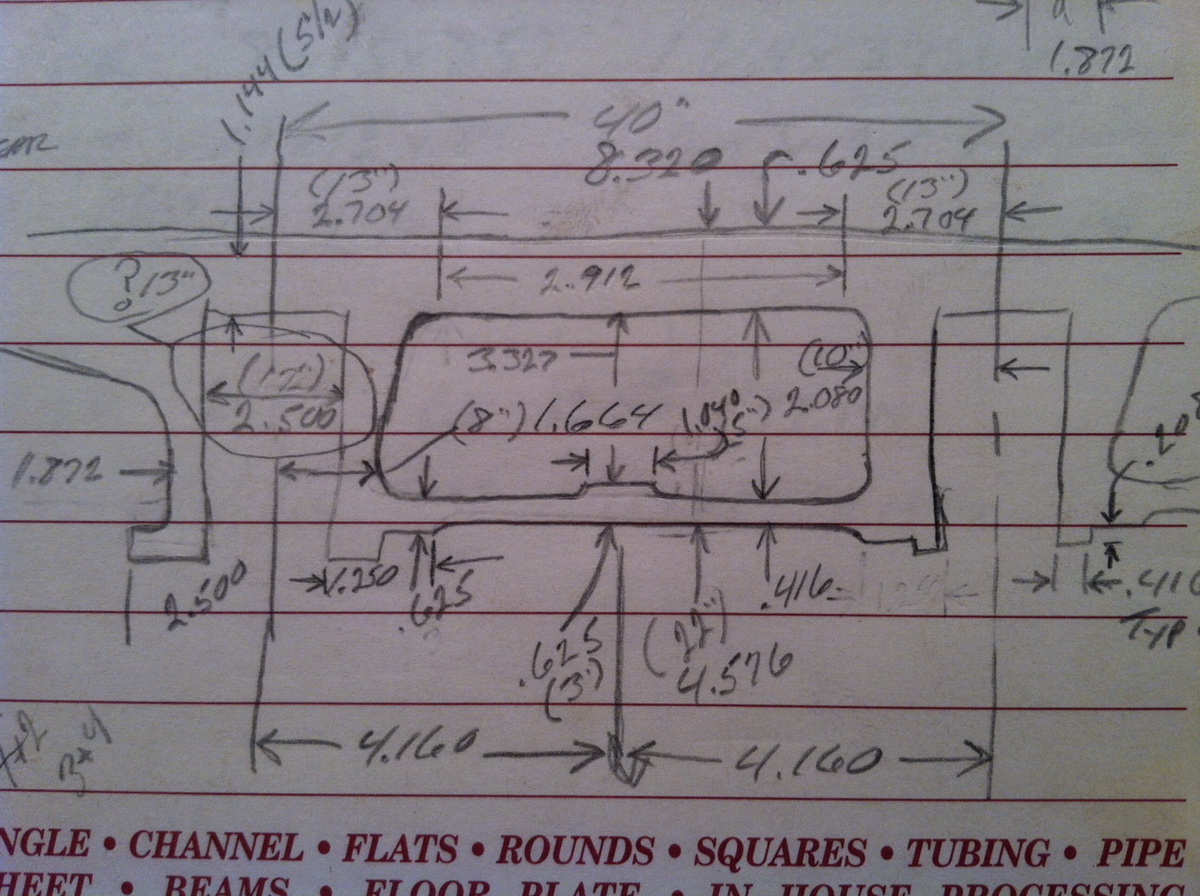 1.144 (5 1/2)
1.872
40"
8.320
.625
(13")
2.704
(13")
2.704
? 13"
2.912
3.327
(10")
2.080
(12")
2.500
(8") 1.664
1.040
1.872
2.500
1.250
.625
.416
.416
TYP
.625
(3")
(22")
4.576
4.160
4.160
3x4
NGLE • CHANNEL • FLATS • ROUNDS • SQUARES • TUBING • PIPE
HEET • BEAMS • FLOOR PLATE • IN HOUSE PROCESSING